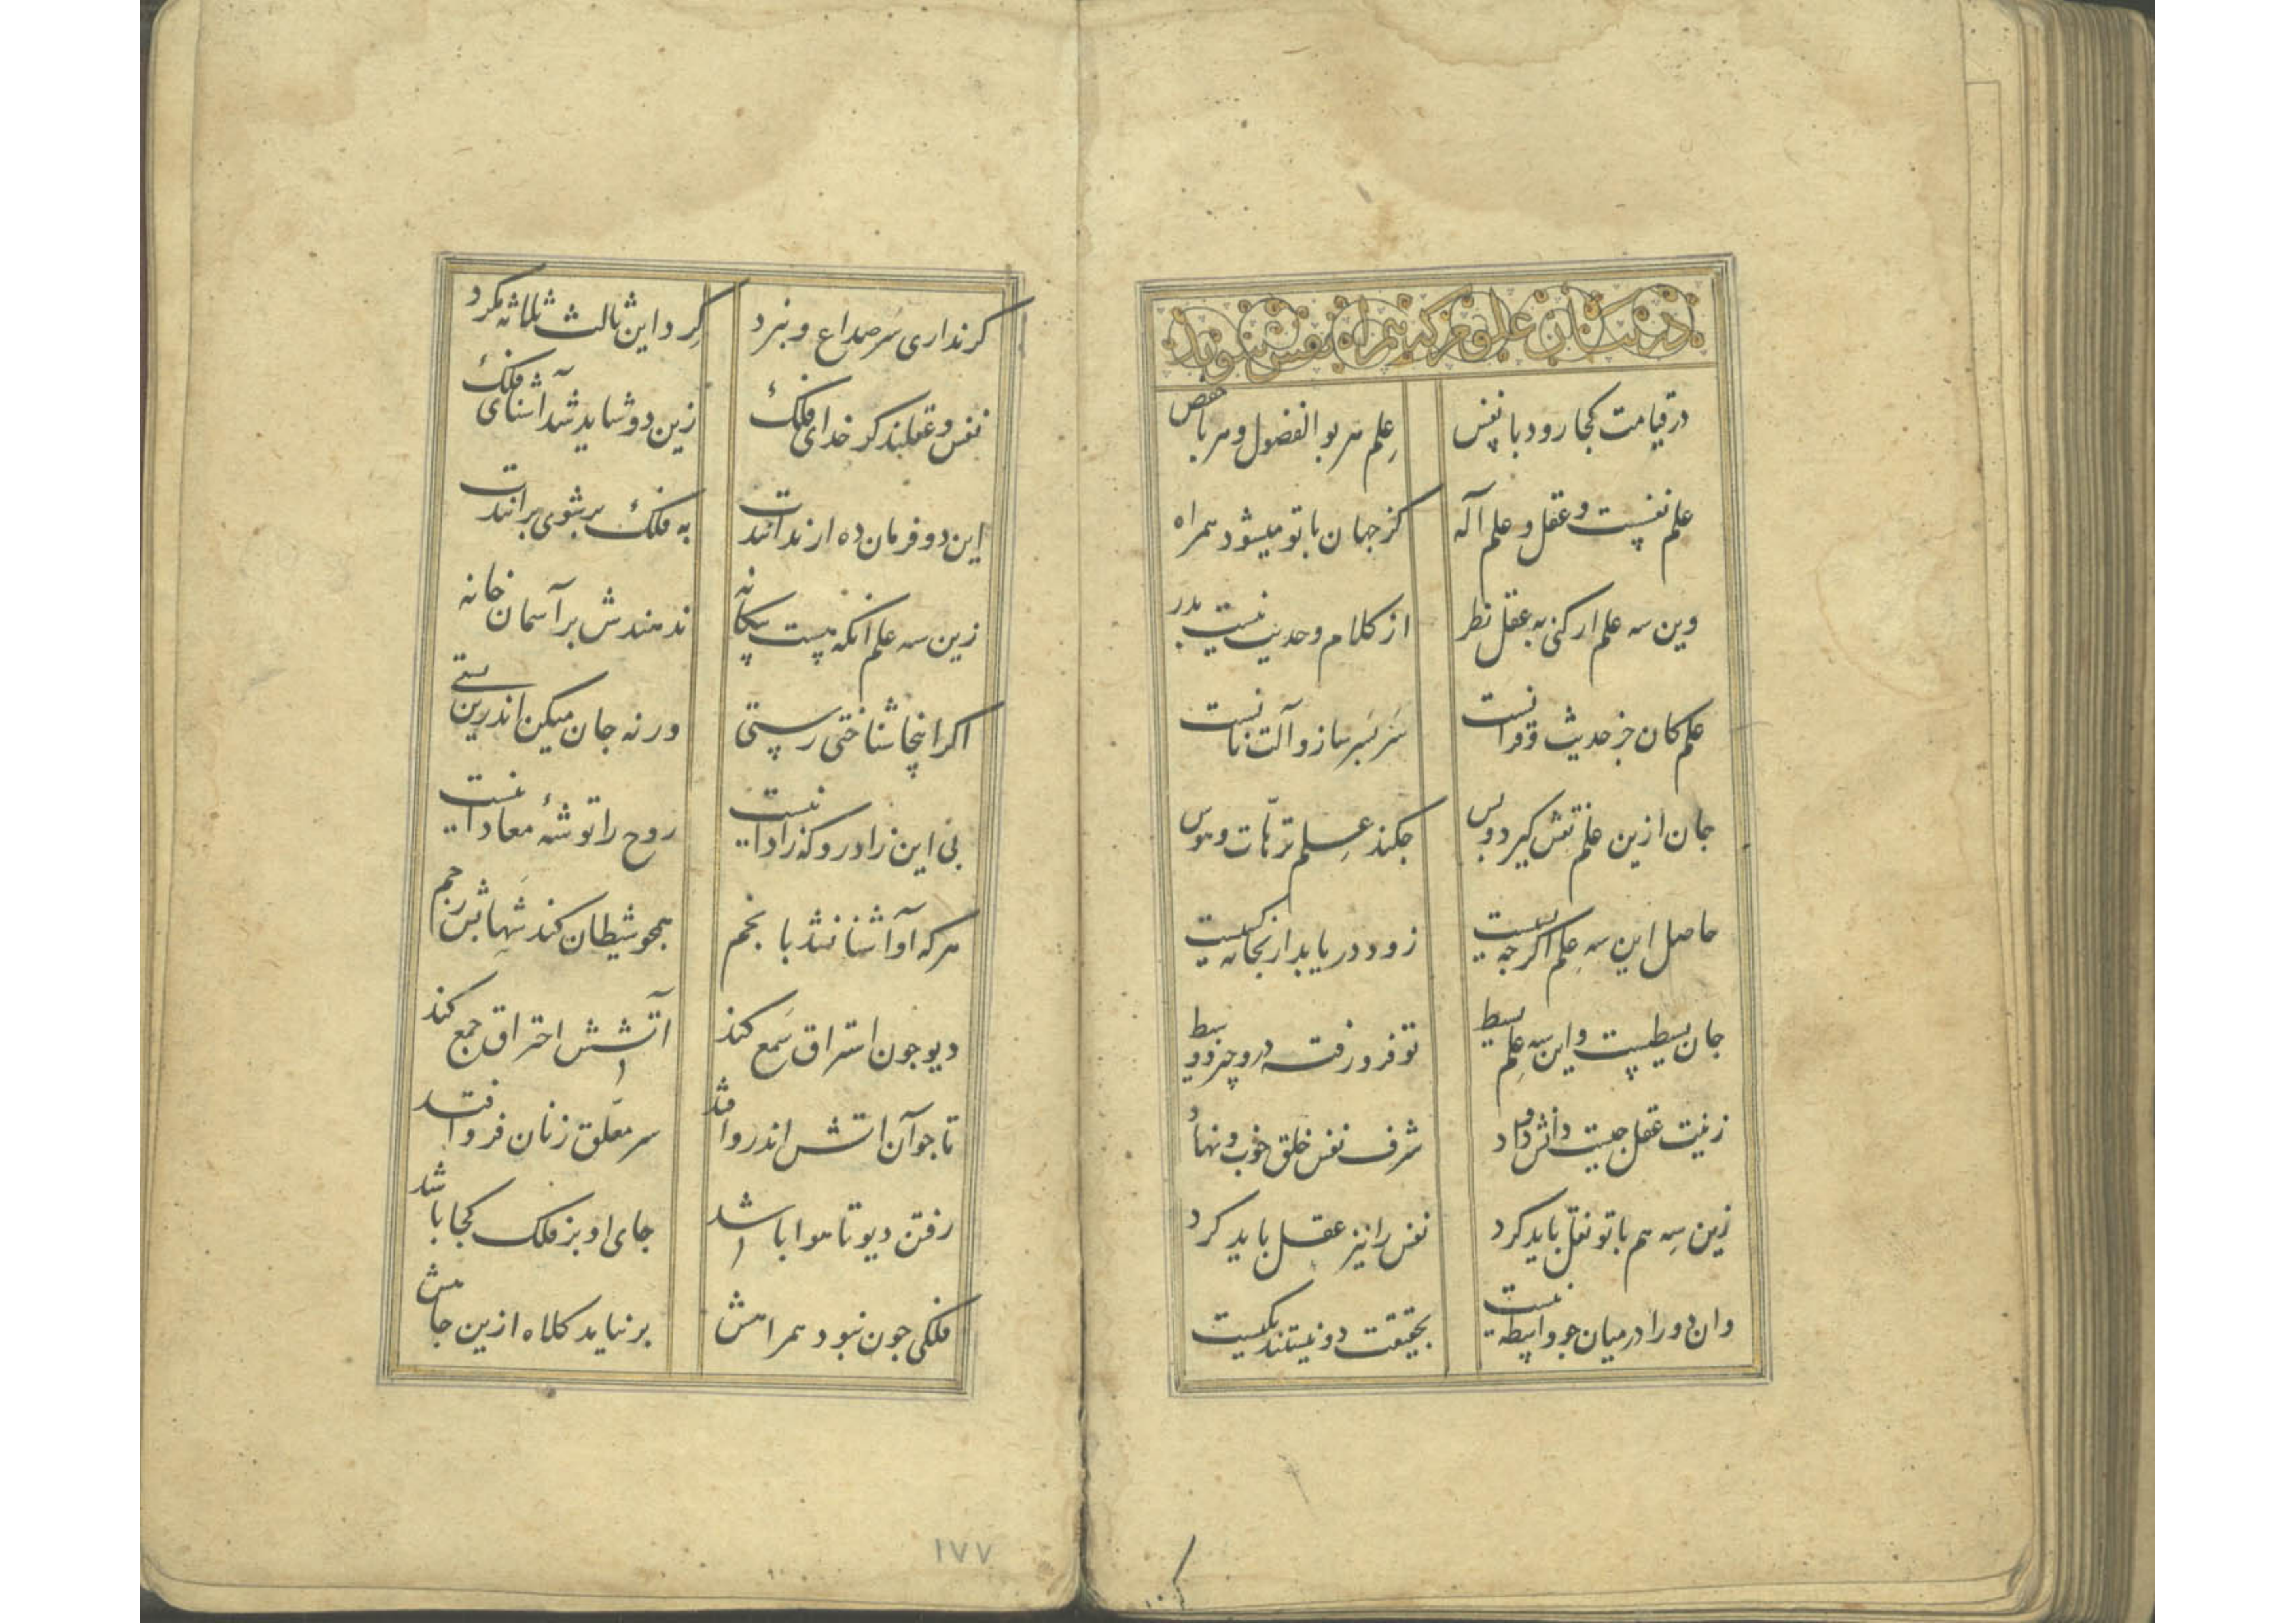 در بیان علومی که همراه نفس شود باز
در قیامت کجا رود با نفس علم مر بوالفضول و مر باحفص
علم نفسیست و عقل و علم آله کز جهان با تو میشود همراه
وین سه علم ار کنی به عقل نظر از کلام و حدیث نیست بدر
علم کان جز حدیث و قرآنست سربسر ساز و آلت نانست
جان ازین علم نقش گیرد و بس چکند علم ترهات و هوس
حاصل این سه علم اگرچه بسیست زود دریابد ار بخانه کسیست
جان بسیطیست و این سه علم بسیط تو فرو رفته در وجیز و وسیط
زینت عقل چیست دانش و داد شرف نفس خلق خوب و نهاد
زین سه هم با تو نقل باید کرد نفس را نیز عقل باید کرد
وان دو را در میان چو واسطه نیست بحقیقت دو نیستند یکیست
گر نداری سر صداع و نبرد گرد این ثالث ثلاثه مگرد
نفس و عقلند کدخدای فلک زین دو شاید شد آشنای فلک
این دو فرمان ده ار ندانندت به فلک بر شوی برانندت
زین سه علم آنکه نیست بیگانه ندهندش بر آسمان خانه
اگر اینجا شناختی رستی ورنه جان میکن اندرین پستی
بی این زاد رو که زاد اینست روح را توشه معاد اینست
هر که او آشنا نشد با نجم همچو شیطان کند شهابش رجم
دیو چون استراق سمع کند آتشش احتراق جمع کند
تا چو آن آتش اندرو افتد سر معلق زنان فرو افتد
رفتن دیو تا هوا باشد جای او بر فلک کجا باشد
فلکی چون نبود همراهش بر نیاید کلاه ازین چاهش
۱۷۷